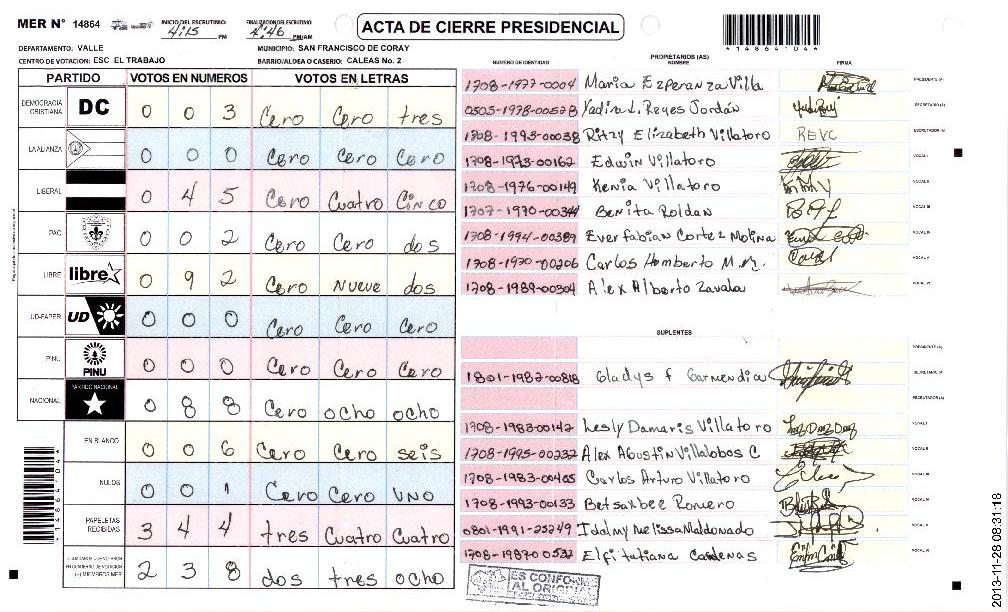 MER N° 14864
INICIO DEL ESCRUTINIO: 4:15 PM
FINALIZACION DEL ESCRUTINIO: 4:46 PM/AM
ACTA DE CIERRE PRESIDENCIAL
*14864104*
DEPARTAMENTO: VALLE
MUNICIPIO: SAN FRANCISCO DE CORAY
CENTRO DE VOTACION: ESC EL TRABAJO
BARRIO/ALDEA O CASERIO: CALEAS No. 2
PARTIDO VOTOS EN NUMEROS VOTOS EN LETRAS
DEMOCRACIA CRISTIANA DC 0 0 3 Cero Cero tres
LA ALIANZA 0 0 0 Cero Cero Cero
LIBERAL 0 4 5 Cero Cuatro Cinco
PAC 0 0 2 Cero Cero dos
LIBRE libre 0 9 2 Cero Nueve dos
UD-FAPER UD 0 0 0 Cero Cero Cero
PINU PINU 0 0 0 Cero Cero Cero
NACIONAL PARTIDO NACIONAL 0 8 8 Cero ocho ocho
EN BLANCO 0 0 6 Cero Cero seis
NULOS 0 0 1 Cero Cero uno
PAPELETAS RECIBIDAS 3 4 4 tres Cuatro Cuatro
(+) MIEMBROS MER 2 3 8 dos tres ocho
*14864104*
PROPIETARIOS (AS)
NUMERO DE IDENTIDAD NOMBRE FIRMA
1708-1977-0004 Maria Ezperanza Villa PRESIDENTE (A)
0505-1978-00578 Yadira L. Reyes Jordán SECRETARIO (A)
1708-1993-00038 Ritzy Elizabeth Villatoro REVC ESCRUTADOR (A)
1708-1973-00162 Edwin Villatoro VOCAL I
1708-1976-00149 Kenia Villatoro VOCAL II
1707-1970-00344 Benita Roldan VOCAL III
1708-1994-00389 Ever fabian Cortez Molina VOCAL IV
1708-1970-00206 Carlos Humberto M.M. VOCAL V
1708-1989-00304 Alex Alberto Zavala VOCAL VI
SUPLENTES
PRESIDENTE (A)
1801-1982-00818 Gladys f Garmendia SECRETARIO (A)
ESCRUTADOR (A)
1708-1983-00142 Lesly Damaris Villatoro VOCAL I
1708-1995-00232 Alex Agustin Villalobos C VOCAL II
1708-1983-00465 Carlos Arturo Villatoro VOCAL III
1708-1993-00133 Betsabee Romero VOCAL IV
0801-1991-25249 Idalmy Melissa Maldonado VOCAL V
1708-1987-00532 Elfi tutiana Cardenas VOCAL VI
ES CONFORME AL ORIGINAL
2013-11-28 08:31:18